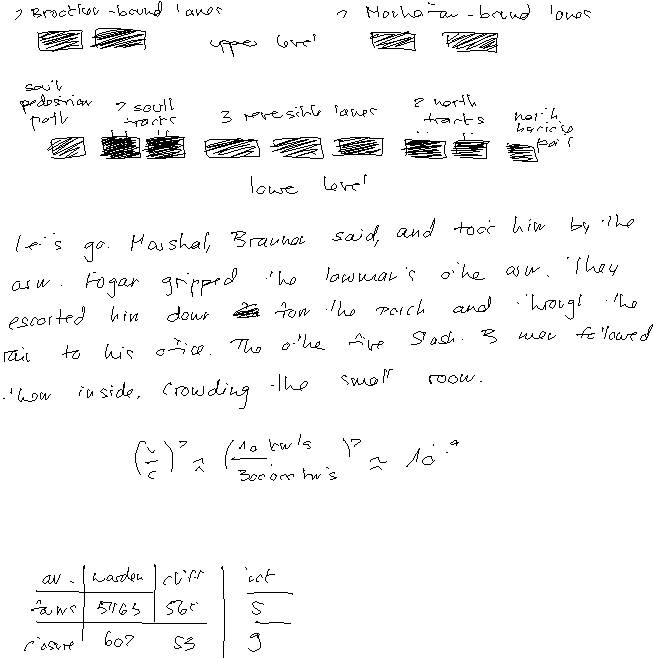 2 Brooklyn-bound lanes 2 Manhattan-bound lanes
upper level
south
pedestrian
path
2 south
tracks
3 reversible lanes
2 north
tracks
north
bicycle
path
lower level
Let's go. Marshal, Brannon said, and took him by the
arm. Fogan gripped the lawman's other arm. They
escorted him down from the porch and through the
rain to his office. The other five Slash B men followed
them inside, crowding the small room.
(v/c)² ≈ (10 km/s / 300000 km/s)² ≈ 10⁻⁹
av. warden cliff ict
fawns 5163 565 5
closure 607 53 9